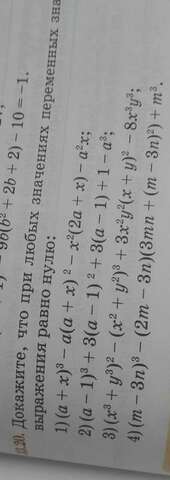 9b(b² + 2b + 2) – 10 = –1.
Докажите, что при любых значениях переменных зна
выражения равно нулю:
1) (a + x)³ – a(a + x)² – x²(2a + x) – a²x;
2) (a – 1)³ + 3(a – 1)² + 3(a – 1) + 1 – a³;
3) (x³ + y³)² – (x² + y²)³ + 3x²y²(x + y)² – 8x³y³;
4) (m – 3n)³ – (2m – 3n)(3mn + (m – 3n)²) + m³.